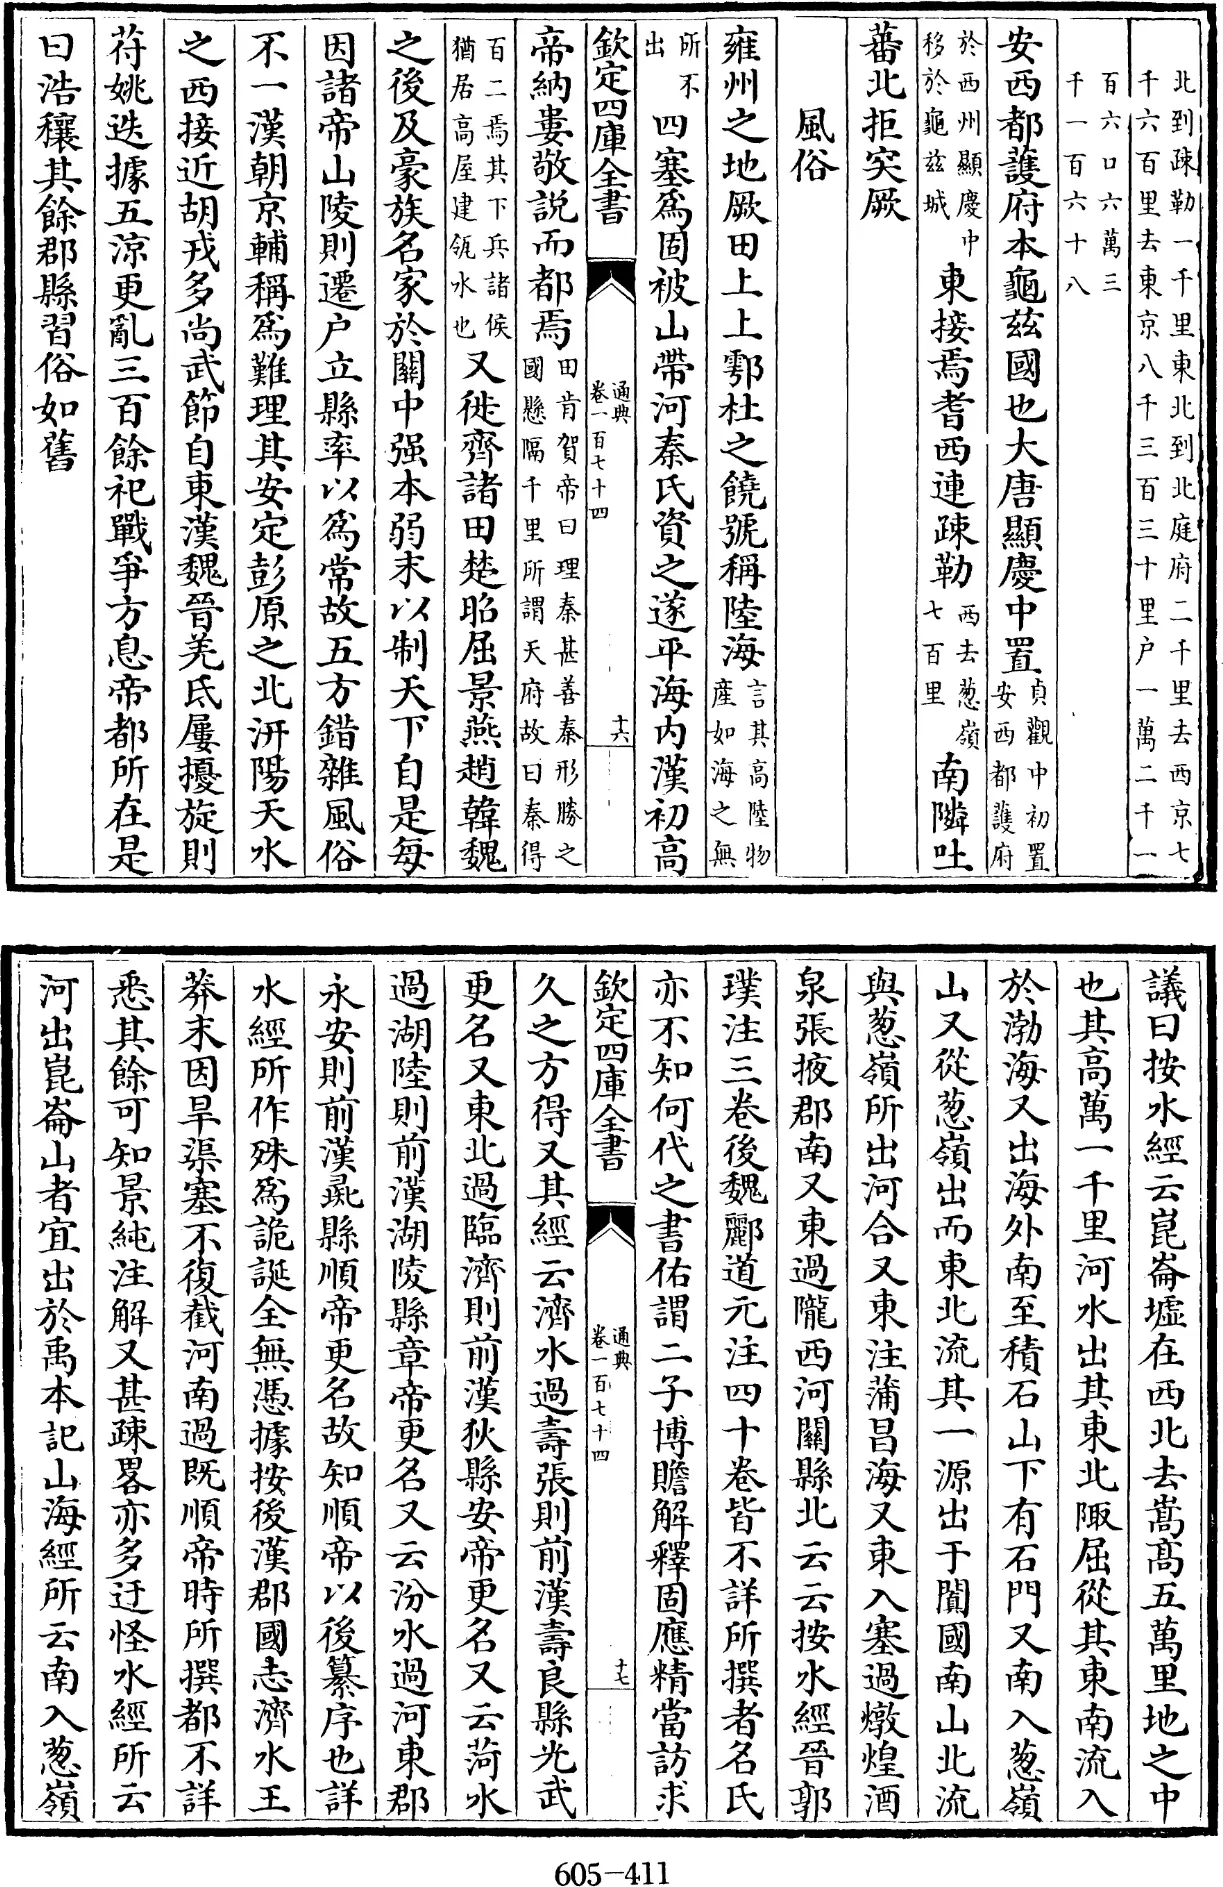 北到疎勒一千里東北到北庭府二千里去西京七
千六百里去東京八千三百三十里户一萬二千一
百六口六萬三
千一百六十八
安西都護府本龜兹國也大唐顯慶中置貞觀中初置
安西都護府
於西州顯慶中
移於龜兹城東接焉耆西連疎勒西去葱嶺
七百里南隣吐
蕃北拒突厥
風俗
雍州之地厥田上上鄠杜之饒號稱陸海言其高陸物
産如海之無
所不
出四塞為固被山帶河秦氏資之遂平海内漢初高
欽定四庫全書
通典
卷一百七十四
十六
帝納婁敬説而都焉田肯賀帝曰理秦甚善秦形勝之
國懸隔千里所謂天府故曰秦得
百二焉其下兵諸侯
猶居高屋建瓴水也又徙齊諸田楚昭屈景燕趙韓魏
之後及豪族名家於關中强本弱末以制天下自是每
因諸帝山陵則遷户立縣率以為常故五方錯雜風俗
不一漢朝京輔稱為難理其安定彭原之北汧陽天水
之西接近胡戎多尚武節自東漢魏晉羌氐屢擾旋則
苻姚迭據五涼更亂三百餘祀戰爭方息帝都所在是
曰浩穰其餘郡縣習俗如舊
議曰按水經云崑崙墟在西北去嵩高五萬里地之中
也其高萬一千里河水出其東北陬屈從其東南流入
於渤海又出海外南至積石山下有石門又南入葱嶺
山又從葱嶺出而東北流其一源出于闐國南山北流
與葱嶺所出河合又東注蒲昌海又東入塞過燉煌酒
泉張掖郡南又東過隴西河關縣北云云按水經晉郭
璞注三卷後魏酈道元注四十卷皆不詳所撰者名氏
亦不知何代之書佑謂二子博贍解釋固應精當訪求
欽定四庫全書
通典
卷一百七十四
十七
久之方得又其經云濟水過壽張則前漢壽良縣光武
更名又東北過臨濟則前漢狄縣安帝更名又云菏水
過湖陸則前漢湖陵縣章帝更名又云汾水過河東郡
永安則前漢彘縣順帝更名故知順帝以後纂序也詳
水經所作殊為詭誕全無憑據按後漢郡國志濟水王
莽末因旱渠塞不復截河南過既順帝時所撰都不詳
悉其餘可知景純注解又甚疎畧亦多迂怪水經所云
河出崑崙山者宜出於禹本記山海經所云南入葱嶺
605-411